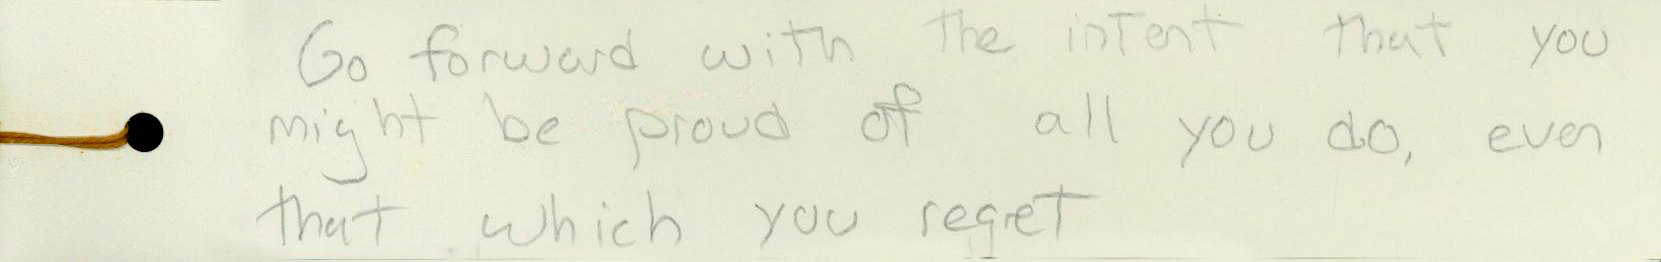 Go forward with the intent that you
might be proud of all you do, even
that which you regret